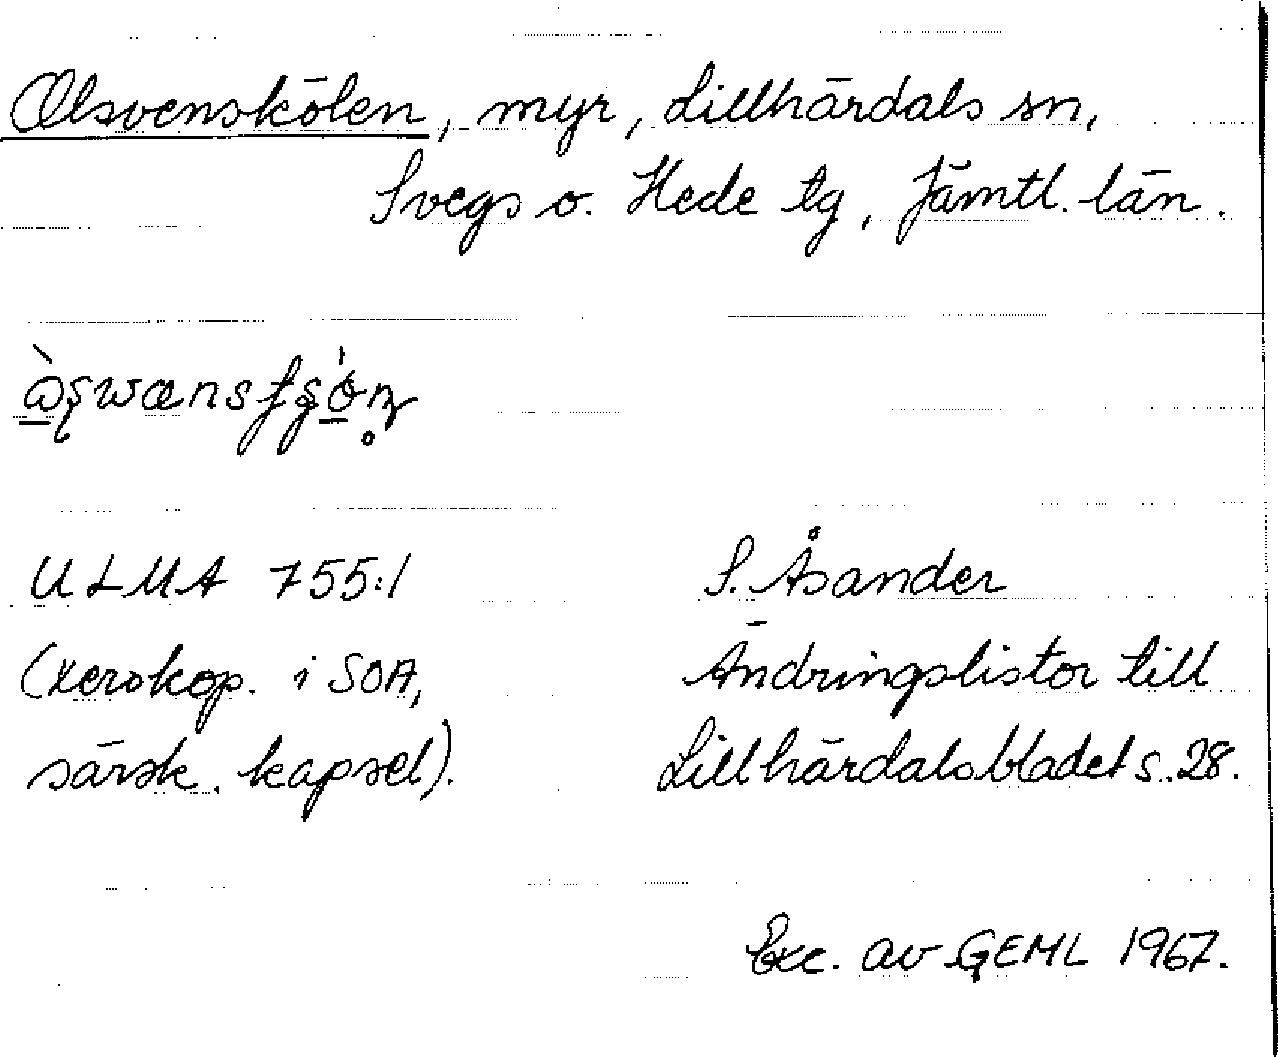 Olsvenskölen, myr, Lillhärdals sn,
Svegs o. Hede tg, Jämtl. län.
ULMA 755:1
(xerokop. i SOA,
särsk. kapsel).
S. Åsander
Ändringslistor till
Lillhärdalsbladet s. 28.
Exc. av GEML 1967.